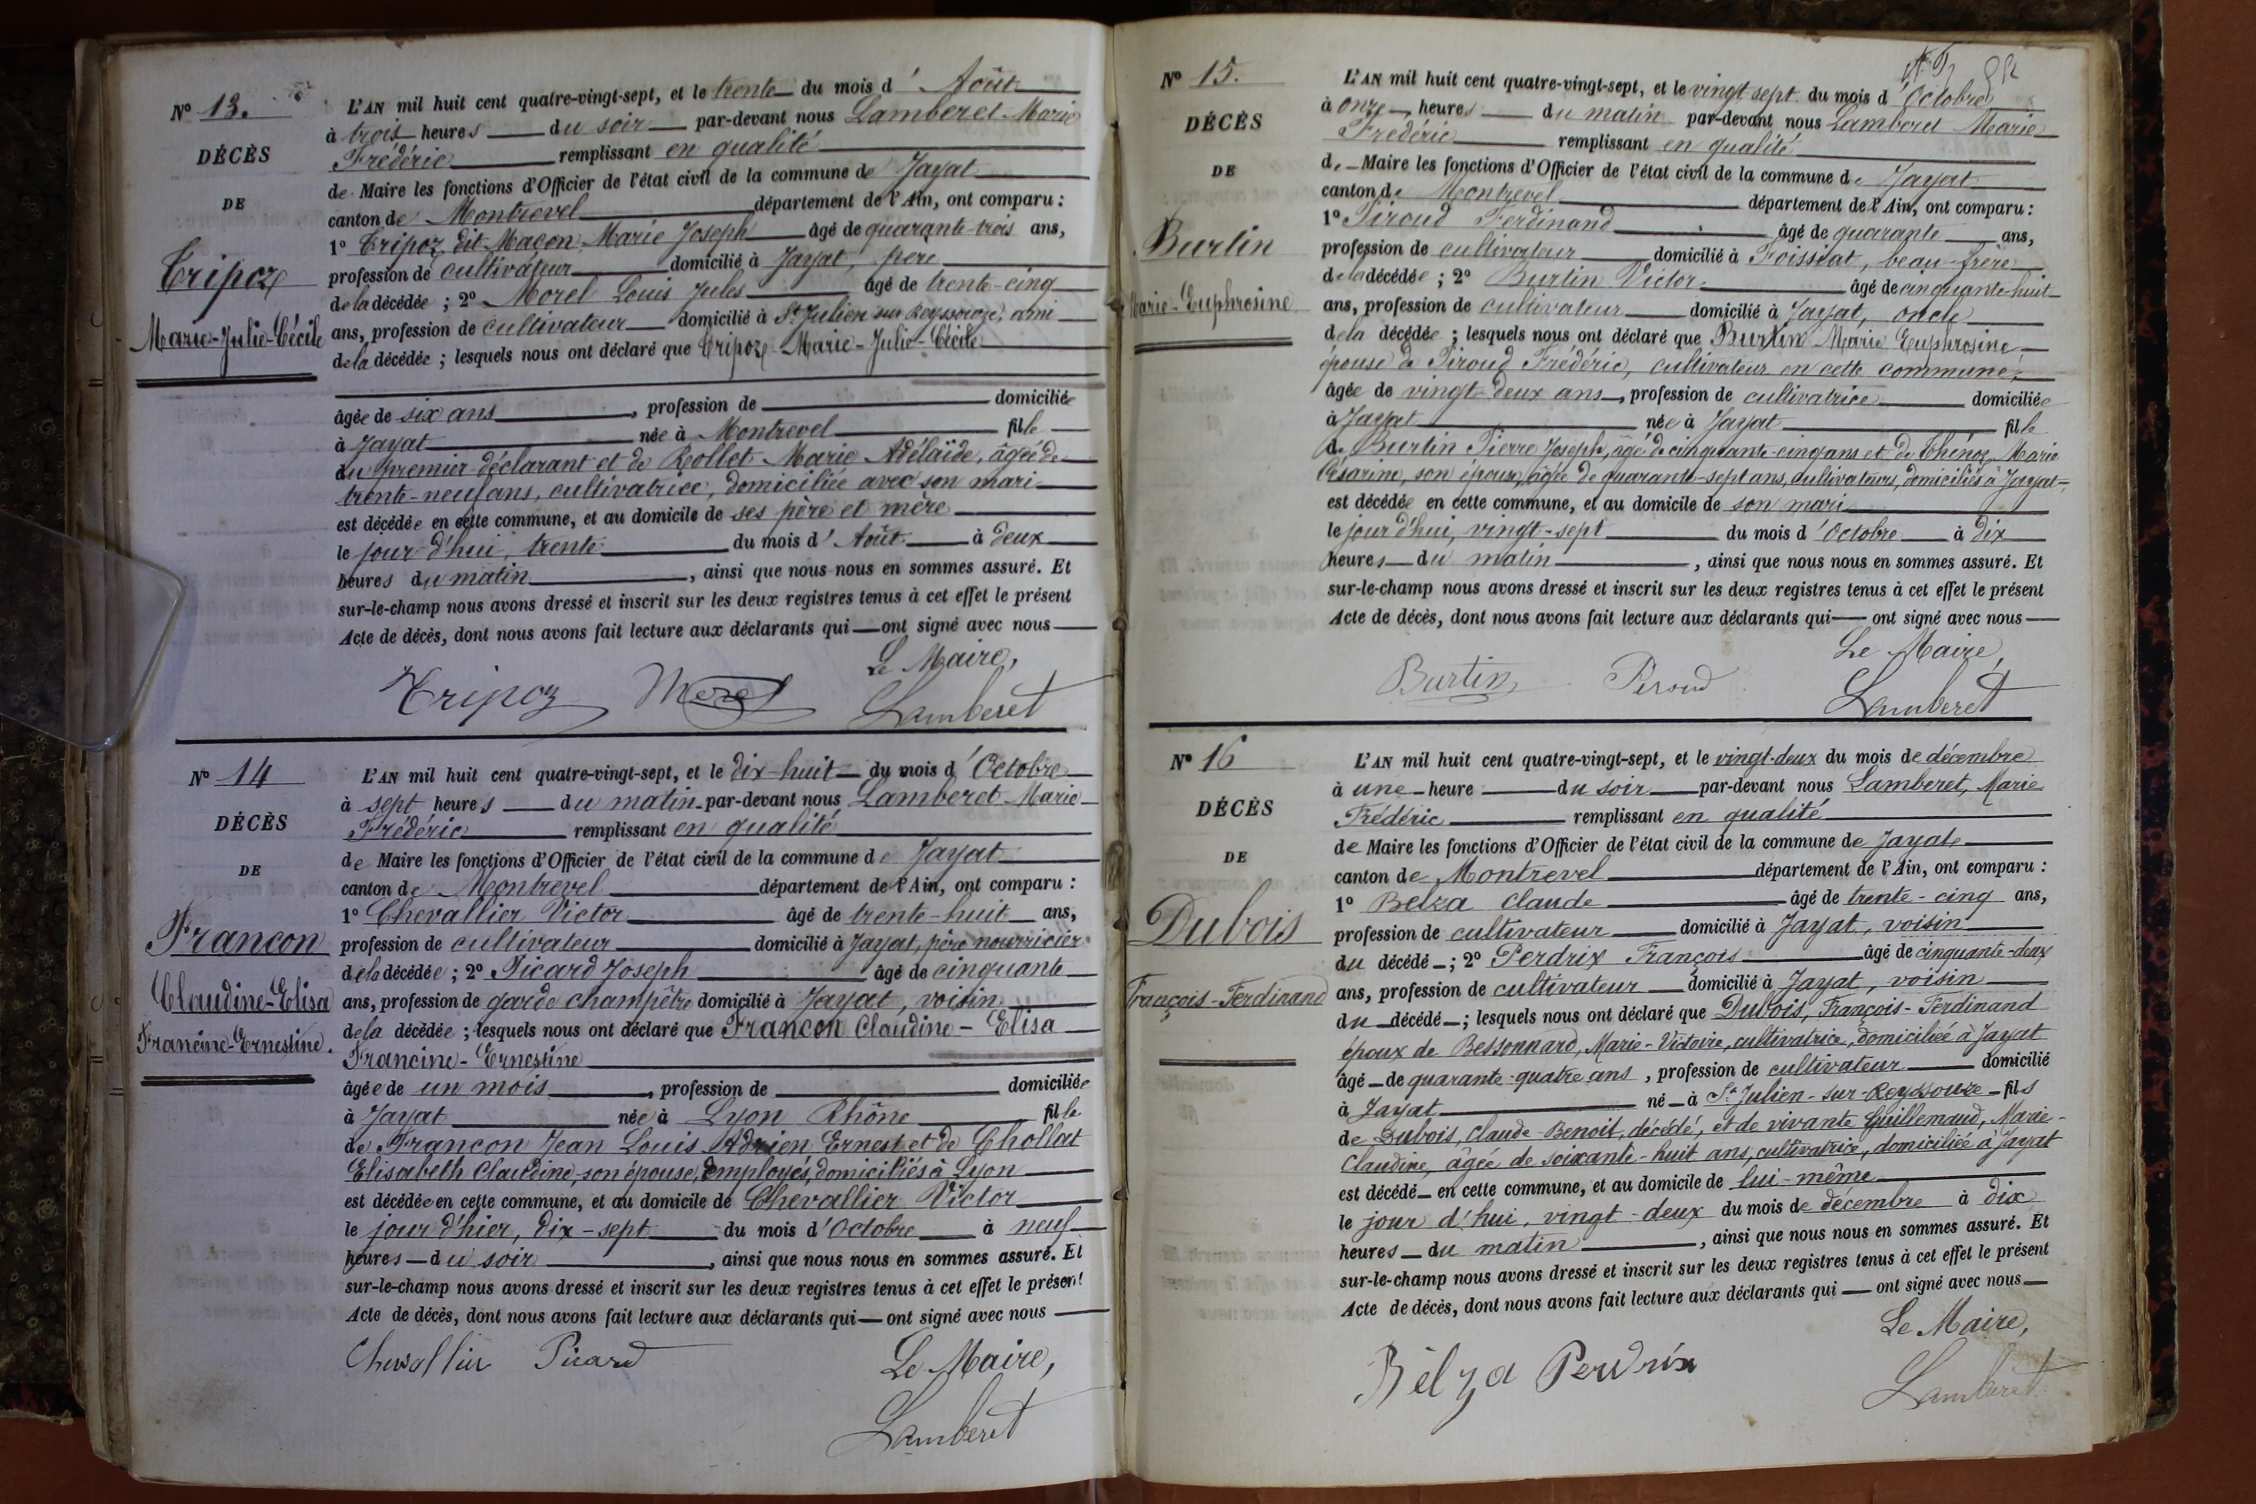 Nº 13.
DÉCÈS
DE
Tripoz
Marie-Julie-Cécile
L'AN mil huit cent quatre-vingt-sept, et le trente du mois d'Août
à trois heures du soir par-devant nous Lamberet Marie
Frédéric remplissant en qualité
de Maire les fonctions d'Officier de l'état civil de la commune de Jayat
canton de Montrevel département de l'Ain, ont comparu :
1º Tripoz dit Maçon Marie Joseph âgé de quarante-trois ans,
profession de cultivateur domicilié à Jayat, père
de la décédée ; 2º Morel Louis Jules âgé de trente-cinq
ans, profession de cultivateur domicilié à St Julien sur Reyssouze, ami
de la décédée ; lesquels nous ont déclaré que Tripoz Marie-Julie-Cécile
âgée de six ans, profession de domiciliée
à Jayat née à Montrevel fille
du premier déclarant et de Rollet Marie Adélaïde, âgée de
trente-neuf ans, cultivatrice, domiciliée avec son mari
est décédée en cette commune, et au domicile de ses père et mère
le jour d'hui, trente du mois d'Août à deux
heures du matin, ainsi que nous nous en sommes assuré. Et
sur-le-champ nous avons dressé et inscrit sur les deux registres tenus à cet effet le présent
Acte de décès, dont nous avons fait lecture aux déclarants qui ont signé avec nous
Le Maire,
Tripoz Morel Lamberet
Nº 14
DÉCÈS
DE
Francon
Claudine-Elisa
Francine-Ernestine.
L'AN mil huit cent quatre-vingt-sept, et le dix-huit du mois d'Octobre
à sept heures du matin par-devant nous Lamberet Marie
Frédéric remplissant en qualité
de Maire les fonctions d'Officier de l'état civil de la commune de Jayat
canton de Montrevel département de l'Ain, ont comparu :
1º Chevallier Victor âgé de trente-huit ans,
profession de cultivateur domicilié à Jayat, père nourricier
de la décédée ; 2º Picard Joseph âgé de cinquante
ans, profession de garde champêtre domicilié à Jayat, voisin
de la décédée ; lesquels nous ont déclaré que Francon Claudine-Elisa
Francine-Ernestine
âgée de un mois, profession de domiciliée
à Jayat née à Lyon Rhône fille
de Francon Jean Louis Adrien Ernest et de Chollat
Elisabeth Claudine, son épouse, employés, domiciliés à Lyon
est décédée en cette commune, et au domicile de Chevallier Victor
le jour d'hier, dix-sept du mois d'Octobre à neuf
heures du soir, ainsi que nous nous en sommes assuré. Et
sur-le-champ nous avons dressé et inscrit sur les deux registres tenus à cet effet le présent
Acte de décès, dont nous avons fait lecture aux déclarants qui ont signé avec nous
Chevallier Picard Le Maire,
Lamberet
Nº 15.
DÉCÈS
DE
Burtin
Marie-Euphrosine
L'AN mil huit cent quatre-vingt-sept, et le vingt sept du mois d'Octobre
à onze heures du matin par-devant nous Lamberet Marie
Frédéric remplissant en qualité
de Maire les fonctions d'Officier de l'état civil de la commune de Jayat
canton de Montrevel département de l'Ain, ont comparu :
1º Piroud Ferdinand âgé de quarante ans,
profession de cultivateur domicilié à Foissiat, beau-frère
de la décédée ; 2º Burtin Victor âgé de cinquante-huit
ans, profession de cultivateur domicilié à Jayat, oncle
de la décédée ; lesquels nous ont déclaré que Burtin Marie Euphrosine
épouse de Piroud Frédéric, cultivateur en cette commune,
âgée de vingt-deux ans, profession de cultivatrice domiciliée
à Jayat née à Jayat fille
de Burtin Pierre Joseph, âgé de cinquante-cinq ans et de Thénoz Marie
Césarine, son épouse, âgée de quarante-sept ans, cultivateurs, domiciliés à Jayat
est décédée en cette commune, et au domicile de son mari
le jour d'hui, vingt-sept du mois d'Octobre à dix
heures du matin, ainsi que nous nous en sommes assuré. Et
sur-le-champ nous avons dressé et inscrit sur les deux registres tenus à cet effet le présent
Acte de décès, dont nous avons fait lecture aux déclarants qui ont signé avec nous
Le Maire,
Burtin Piroud Lamberet
Nº 16
DÉCÈS
DE
Dubois
François-Ferdinand
L'AN mil huit cent quatre-vingt-sept, et le vingt-deux du mois de décembre
à une heure du soir par-devant nous Lamberet, Marie
Frédéric remplissant en qualité
de Maire les fonctions d'Officier de l'état civil de la commune de Jayat
canton de Montrevel département de l'Ain, ont comparu :
1º Belza Claude âgé de trente-cinq ans,
profession de cultivateur domicilié à Jayat, voisin
du décédé ; 2º Perdrix François âgé de cinquante-deux
ans, profession de cultivateur domicilié à Jayat, voisin
du décédé ; lesquels nous ont déclaré que Dubois, François-Ferdinand
époux de Bessonnard, Marie-Victoire, cultivatrice, domiciliée à Jayat
âgé de quarante-quatre ans, profession de cultivateur domicilié
à Jayat né à St Julien-sur-Reyssouze fils
de Dubois, Claude-Benoit, décédé, et de vivante Guillemaud, Marie-
Claudine, âgée de soixante-huit ans, cultivatrice, domiciliée à Jayat
est décédé en cette commune, et au domicile de lui-même
le jour d'hui, vingt-deux du mois de décembre à dix
heures du matin, ainsi que nous nous en sommes assuré. Et
sur-le-champ nous avons dressé et inscrit sur les deux registres tenus à cet effet le présent
Acte de décès, dont nous avons fait lecture aux déclarants qui ont signé avec nous
Le Maire,
Bélza Perdrix Lamberet